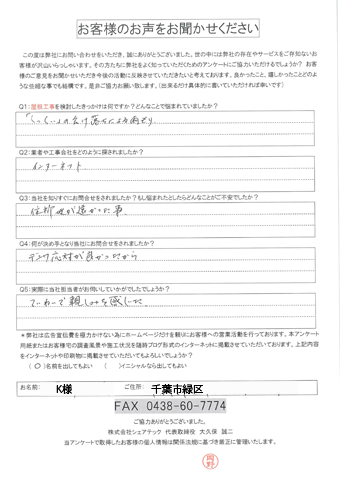 お客様のお声をお聞かせください
この度は弊社にお問い合わせをいただき、誠にありがとうございました。世の中には弊社の存在やサービスをご存知ないお
客様が沢山いらっしゃいます。その方たちに弊社をよく知っていただくためのアンケートにご協力いただけるでしょうか? お客
様のご意見をお聞かせいただき今後の活動に反映させていただきたいと考えております。良かったこと、嬉しかったことどのよ
うな些細な事でも結構です。是非ご協力お願い致します。(出来るだけ具体的に書いていただければ幸いです)
Q1:屋根工事を検討したきっかけは何ですか?どんなことで悩まれていましたか?
Q2:業者や工事会社をどのように探されましたか?
インターネット
Q3:当社を知りすぐにお問合せをされましたか?もし悩まれたとしたらどんなことがご不安でしたか?
住所地が遠かった事
Q4:何が決め手となり当社にお問合せをされましたか?
応対が良かったから
Q5:実際に当社担当者がお伺いしていかがでしたでしょうか?
ていねいで親しみを感じた
*弊社は広告宣伝費を極力かけない為にホームページだけを頼りにお客様への営業活動を行っております。本アンケート
用紙またはお客様宅の調査風景や施工状況を随時ブログ形式のインターネットに掲載させていただいております。上記内容
をインターネットや印刷物に掲載させていただいてもよろしいでしょうか?
(○)名前を出してもよい ( )イニシャルなら出してもよい
お名前: K様 ご住所: 千葉市緑区
FAX 0438-60-7774
ご協力ありがとうございました。
株式会社シェアテック 代表取締役 大久保 誠二
当アンケートで取得したお客様の個人情報は関係法規に基づき厳正に管理いたします。